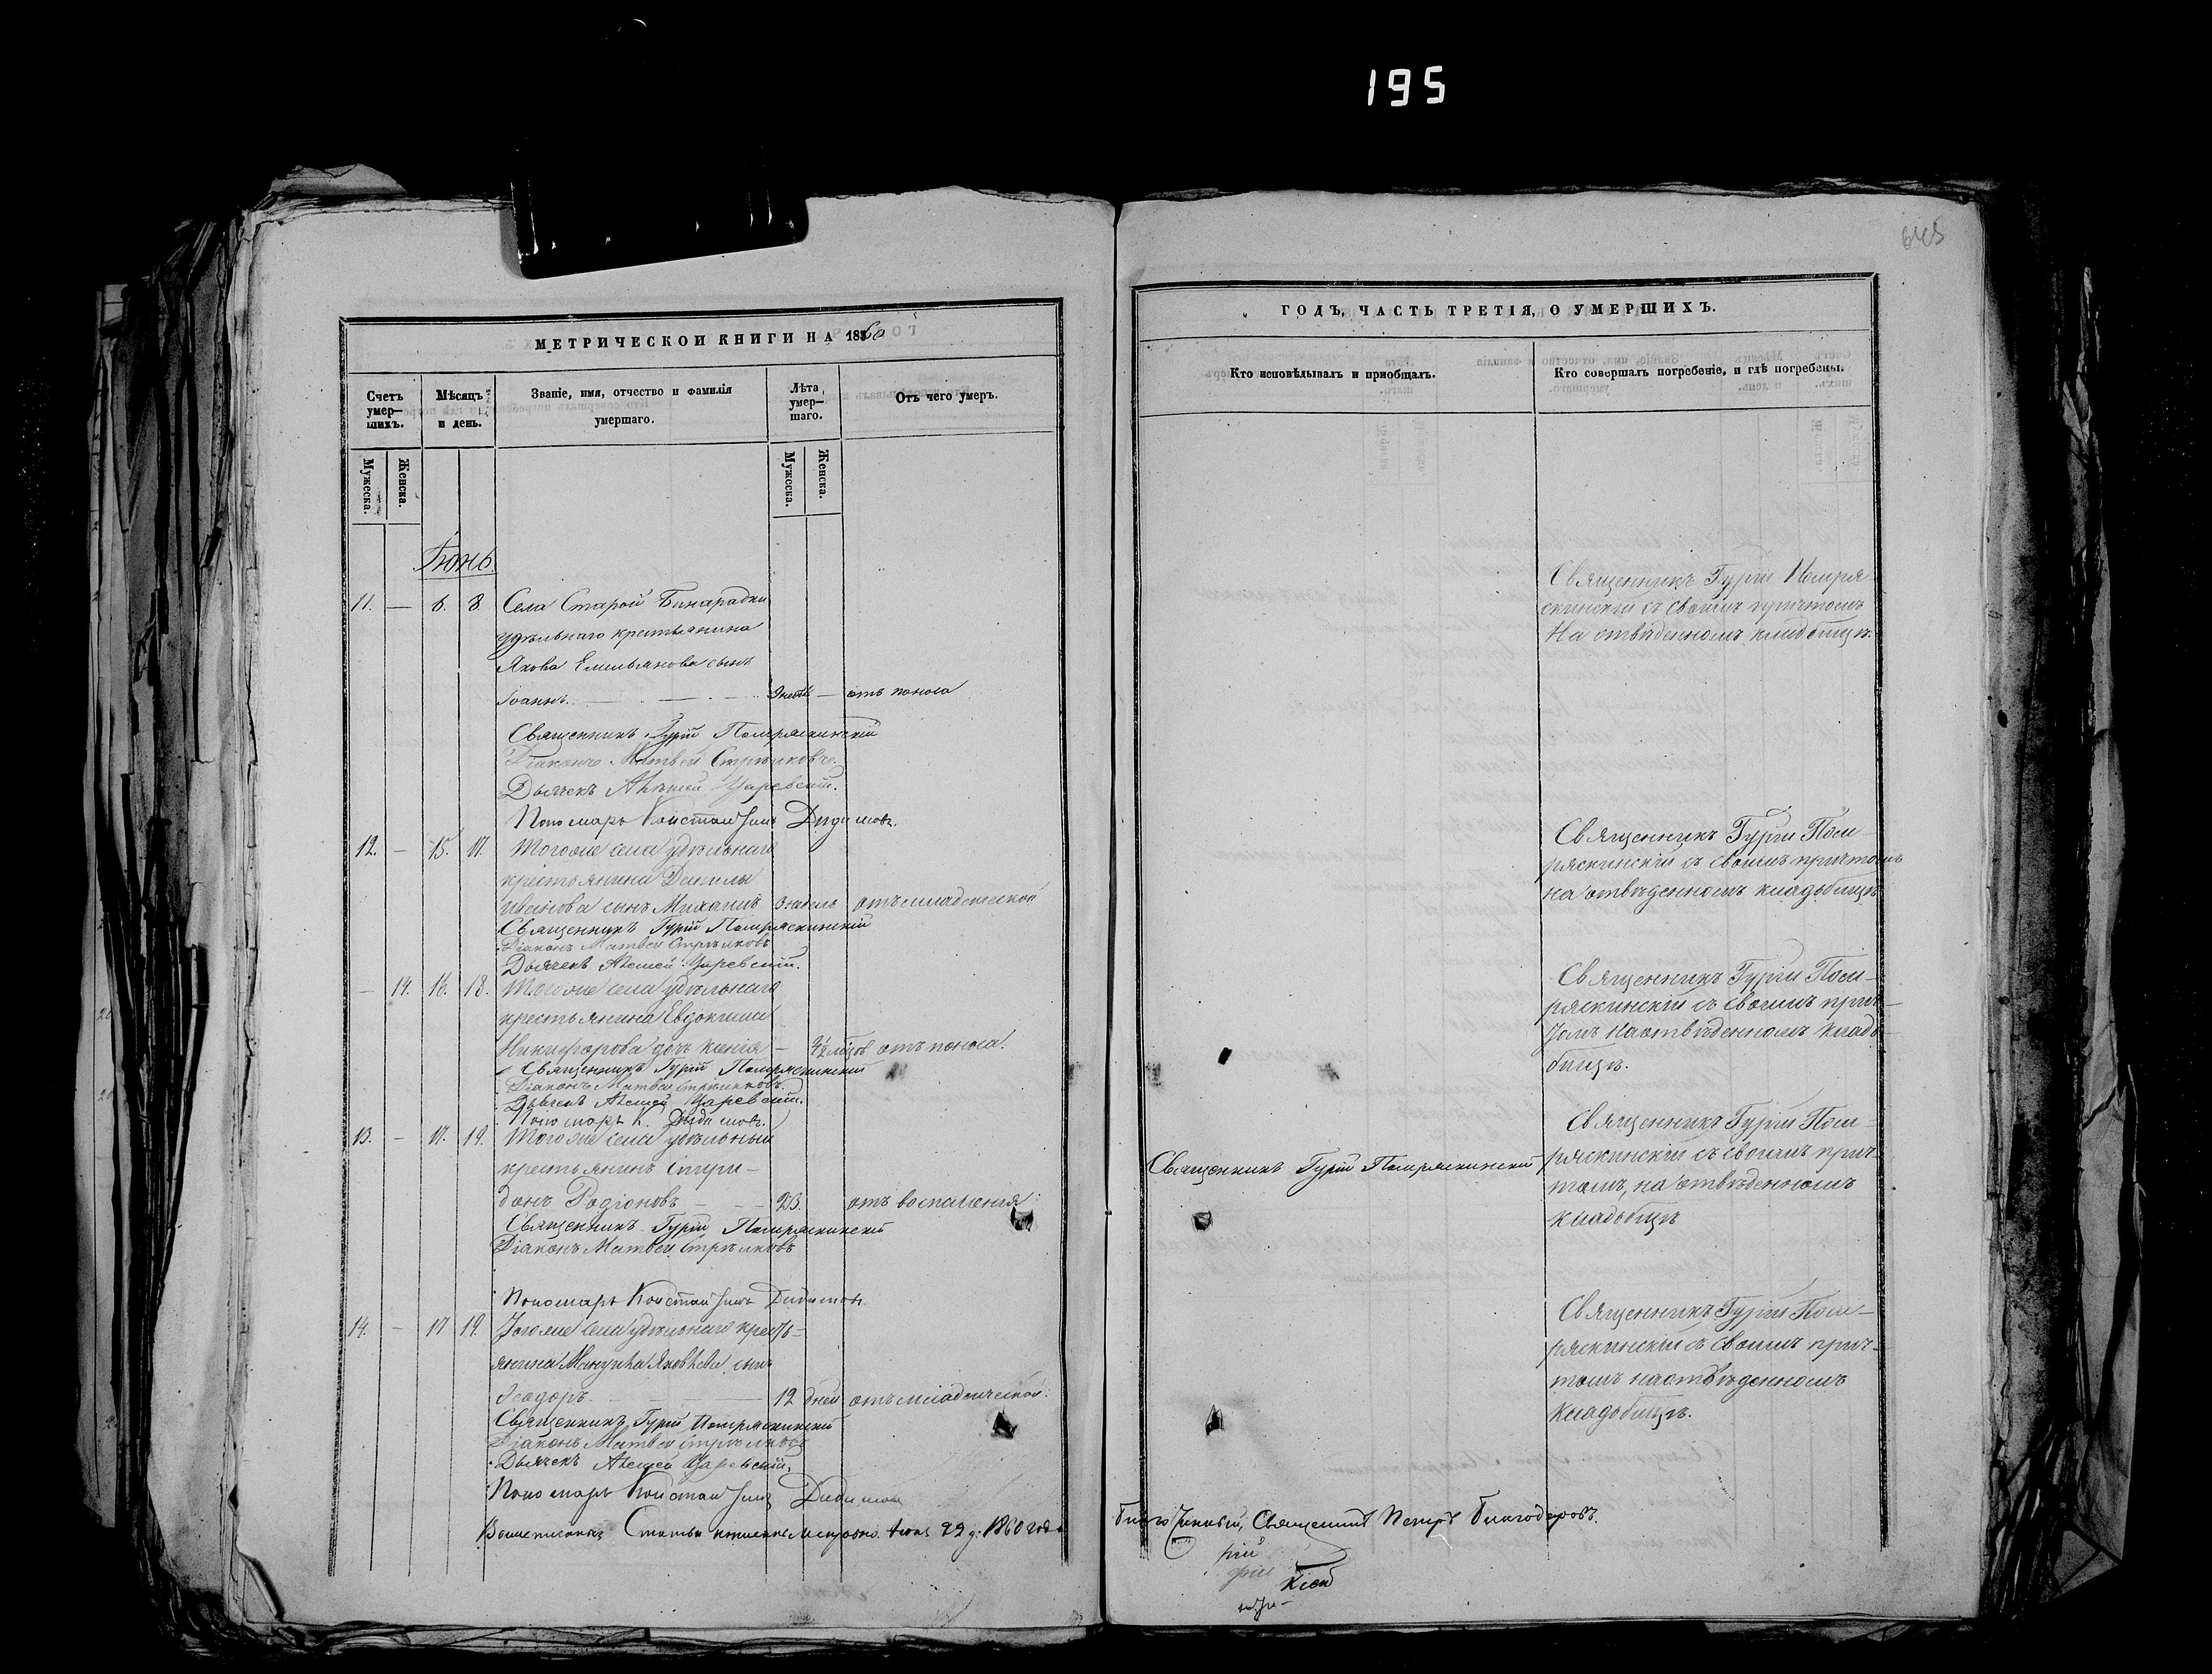 195
645
МЕТРИЧЕСКОЙ КНИГИ НА 1860
Счетъ умер-шихъ.
Мѣсяцъ и день.
Званіе, имя, отчество и фамилія умершаго.
Лѣта умер-шаго.
Отъ чего умеръ.
Мужеска.
Женска.
Мужеска.
Женска.
Іюнь.
11. — 6. 8. Села Старой Бинарадки
удѣльнаго крестьянина
Якова Емельянова сынъ
Іоаннъ. — отъ поноса
Священникъ Гурій Помряскинскій
Діаконъ Матвей Стрѣлковъ.
Дьячекъ Алексей Царевскій.
Пономарь Константинъ Дидимовъ.
12. — 15. 17. Тогоже села удѣльнаго
крестьянина Данилы
Иванова сынъ Михаилъ 3 недель отъ младенческой
Священникъ Гурій Помряскинскій
Діаконъ Матвей Стрѣлковъ
Дьячекъ Алексей Царевскій.
— 14. 16. 18. Тогоже села удѣльнаго
крестьянина Евдокима
Никифорова дочь Ксенія — отъ поноса.
Священникъ Гурій Помряскинскій
Діаконъ Матвей Стрѣлковъ.
Дьячекъ Алексей Царевскій.
Пономарь К. Дидимовъ.
13. — 17. 19. Тогоже села удѣльный
крестьянинъ Спири-
донъ Родіоновъ — 23. отъ воспаленія
Священникъ Гурій Помряскинскій
Діаконъ Матвей Стрѣлковъ
Пономарь Константинъ Дидимовъ
14. — 17 19. Тогоже села удѣльнаго кресть-
янина Яковлева сынъ
Ѳеодоръ — 12 дней отъ младенческой.
Священникъ Гурій Помряскинскій
Діаконъ Матвей Стрѣлковъ
Дьячекъ Алексей Царевскій.
Пономарь Константинъ Дидимовъ
Статьи 22 д. 1860 года
ГОДЪ, ЧАСТЬ ТРЕТІЯ, О УМЕРШИХЪ.
Кто исповѣдывалъ и пріобщалъ.
Кто совершалъ погребеніе, и гдѣ погребены.
Священникъ Гурій Помря-
скинскій съ своимъ причтомъ
На отвѣденномъ кладбищѣ.
Священникъ Гурій Пом-
ряскинскій съ своимъ причтомъ
на отвѣденномъ кладбищѣ
Священникъ Гурій Пом-
ряскинскій съ своимъ прич-
томъ на отвѣденномъ клад-
бищѣ.
Священникъ Гурій Помряскинскій
Священникъ Гурій Пом-
ряскинскій съ своимъ прич-
томъ, на отвѣденномъ
кладбищѣ
Священникъ Гурій Пом-
ряскинскій съ своимъ прич-
томъ на отвѣденномъ
кладбищѣ.
Благочинный, Священникъ Петръ Благодаровъ.
рій